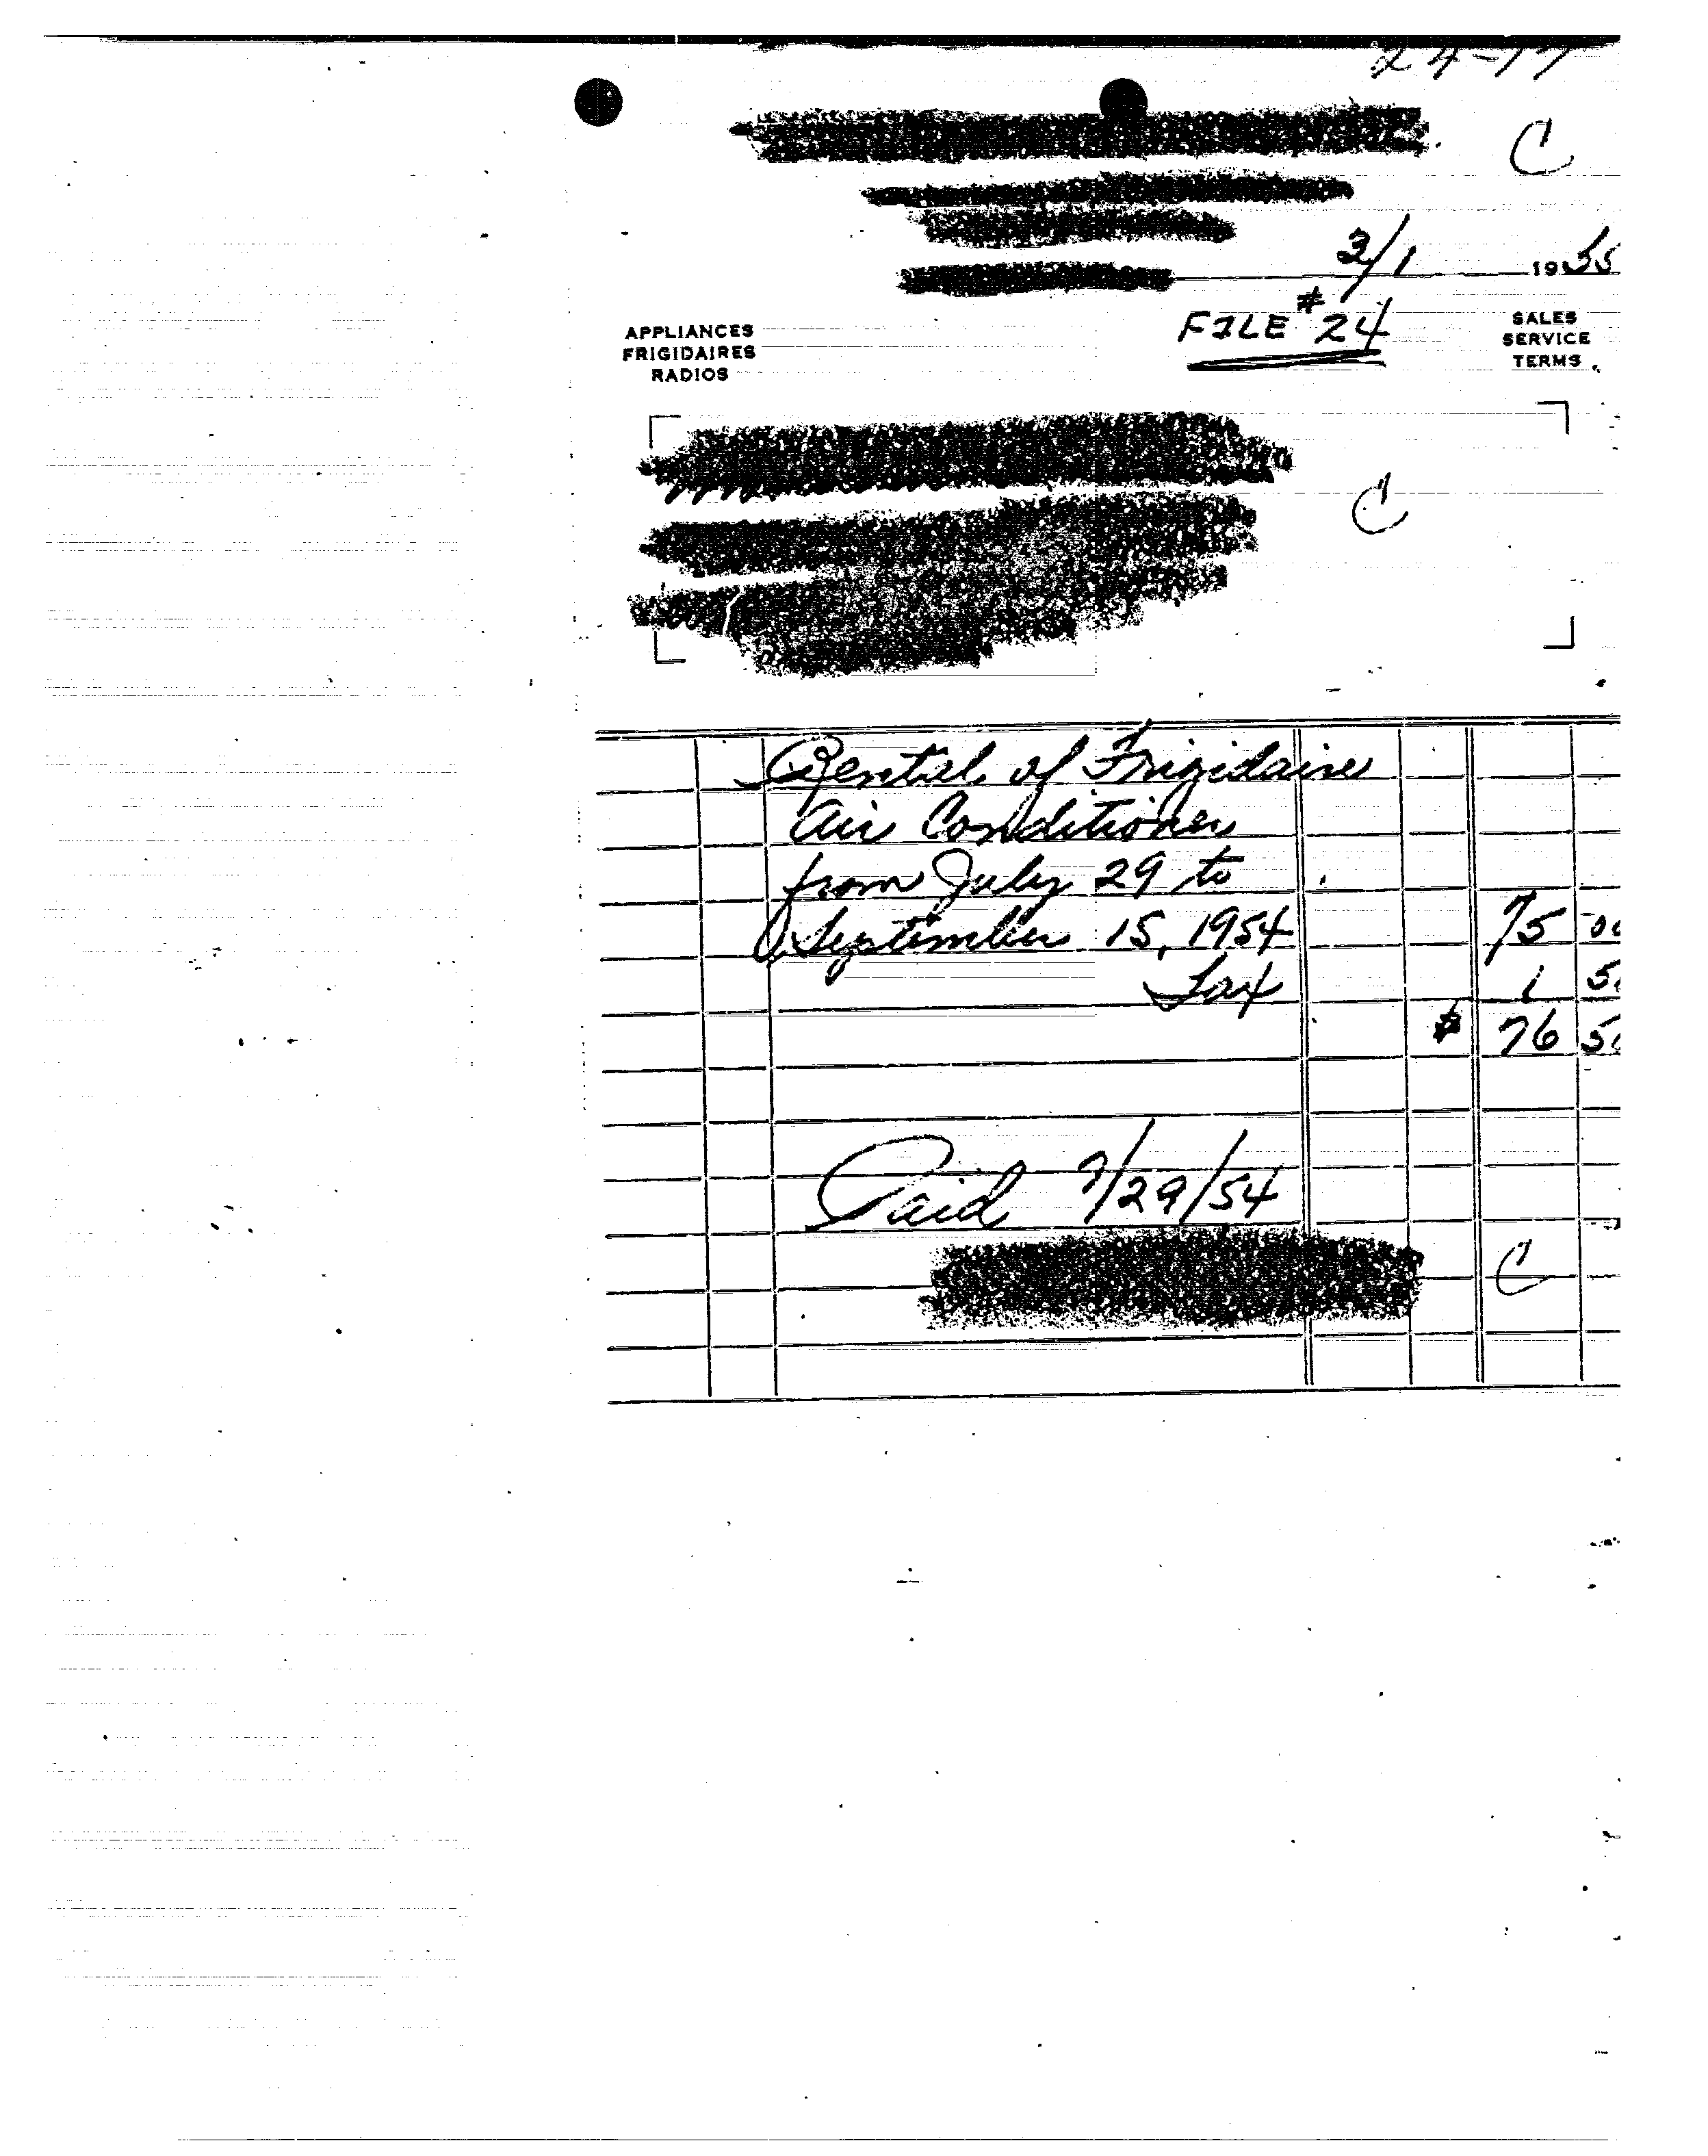 24-17
C
3/1 1955
FILE #24
APPLIANCES
FRIGIDAIRES
RADIOS
SALES
SERVICE
TERMS
C
Rental of Frigidaire
Air Conditioner
from July 29 to
September 15, 1954 75 00
Tax 1 50
$ 76 50
Paid 7/29/54
C